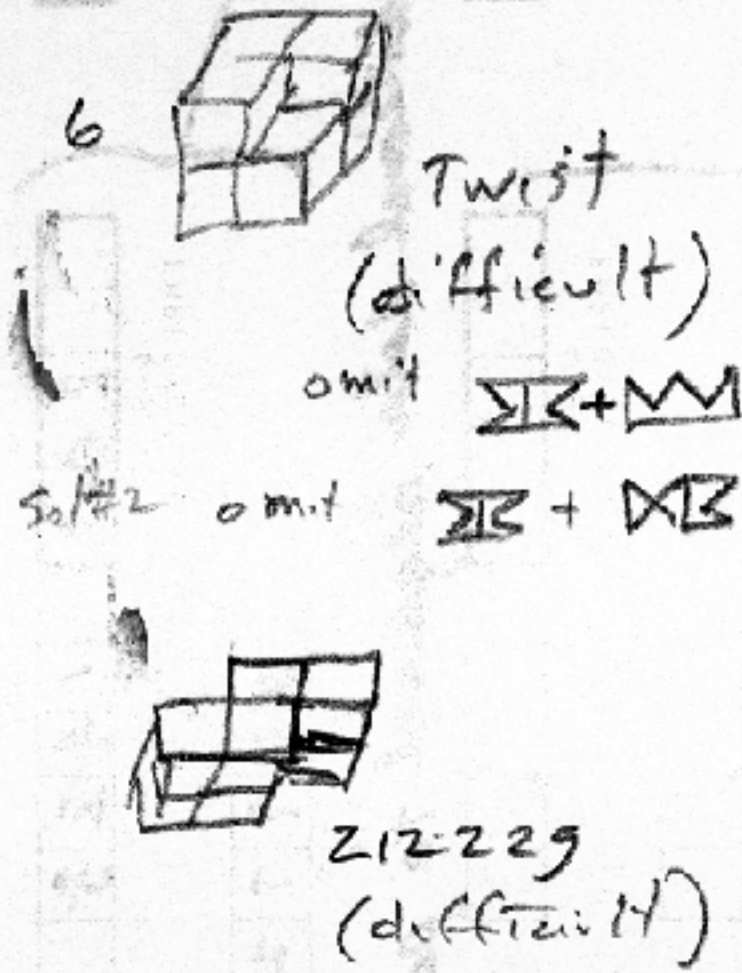 6
Twist
(difficult)
omit +
Sol #2 omit +
(difficult)